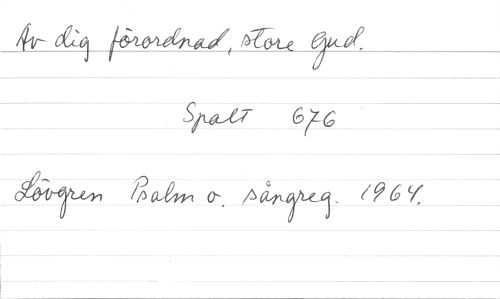 Av dig förordnad, store Gud.
Spalt 676
Lövgren Psalm o. sångreg. 1964.